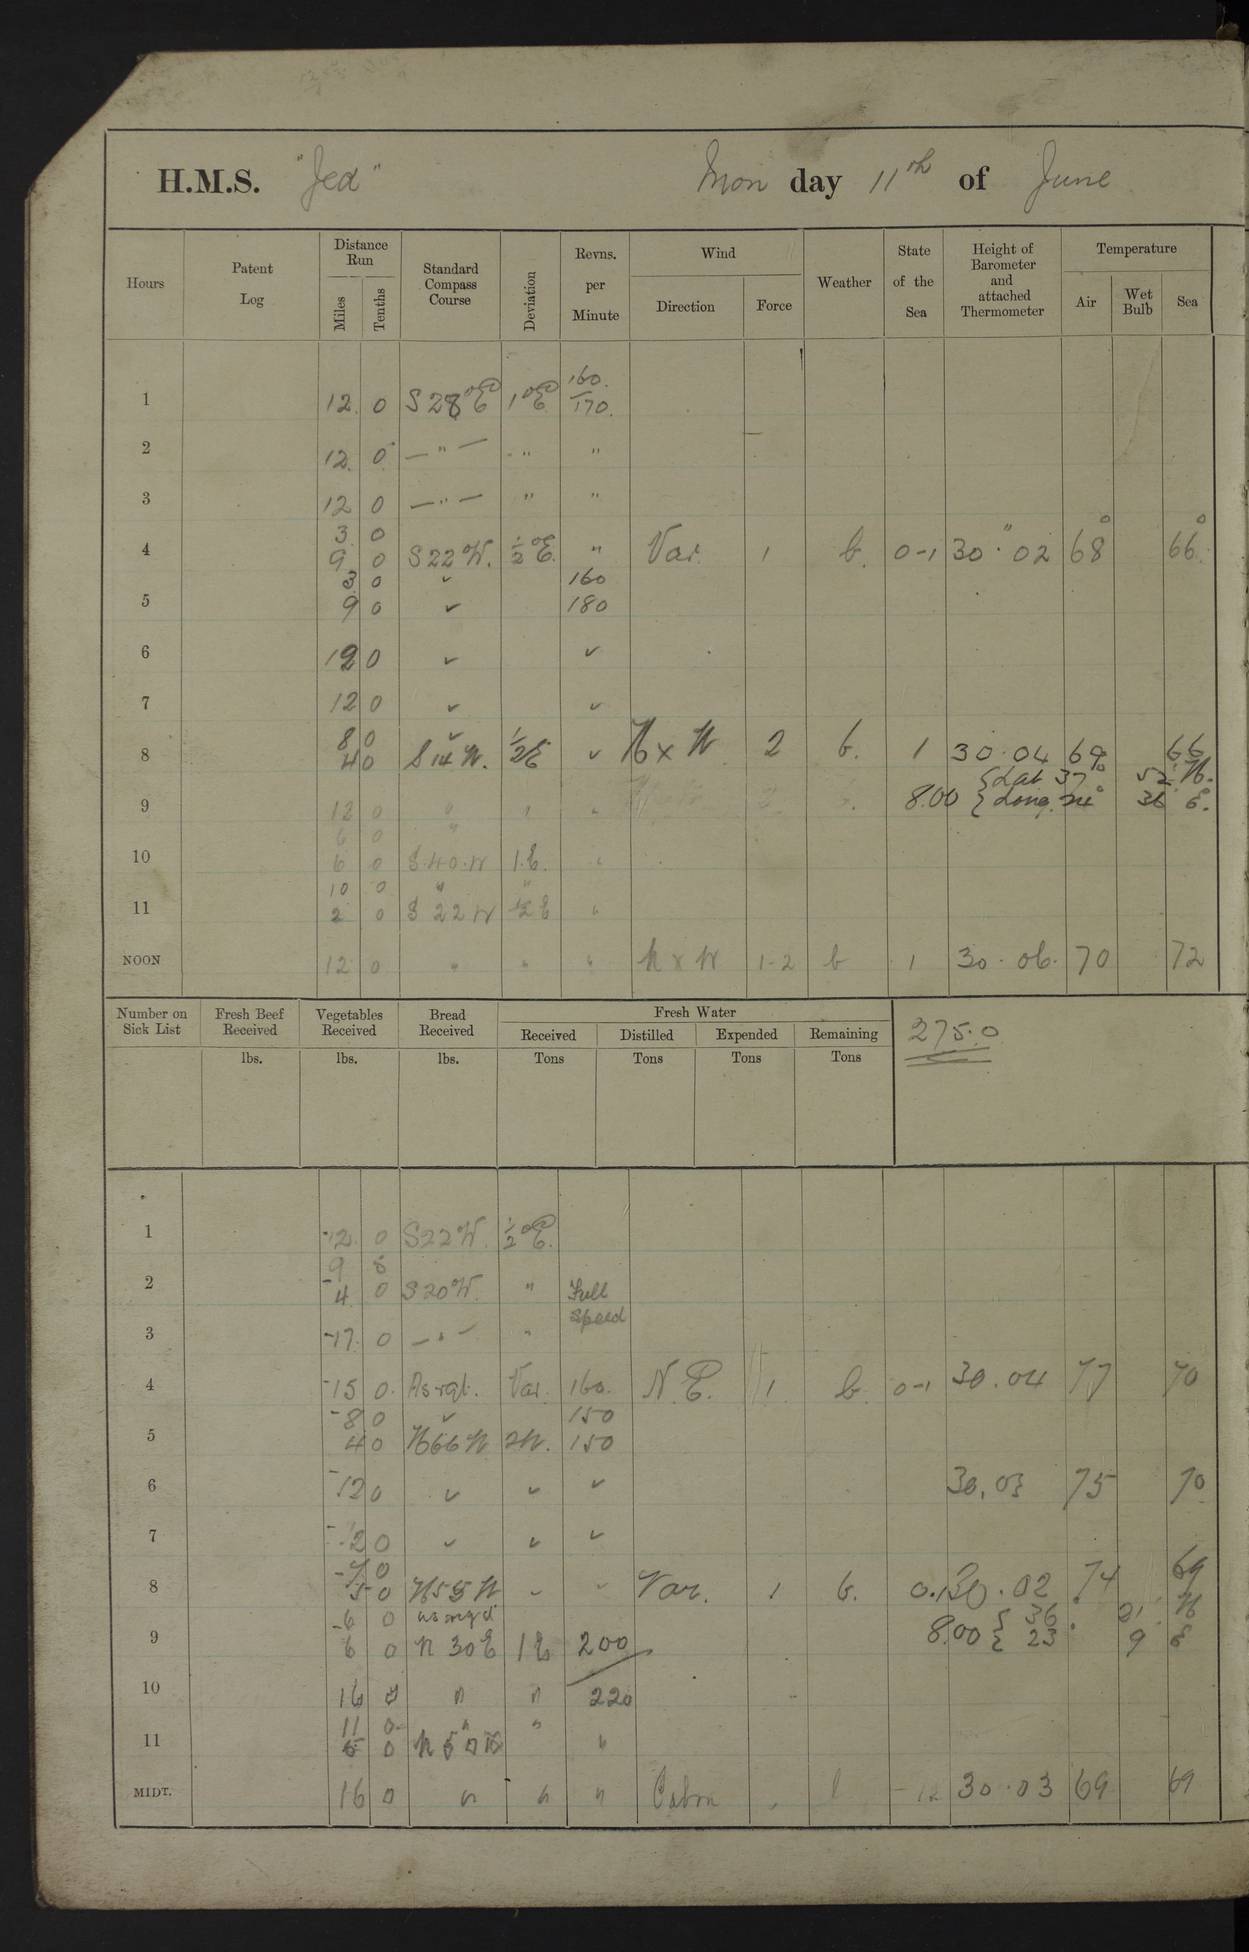 H.M.S. "Jed" Mon day 11th of June
Hours Patent Log Distance Run Miles Tenths Standard Compass Course Deviation Revns. per Minute Wind Direction Force Weather State of the Sea Height of Barometer and attached Thermometer Temperature Air Wet Bulb Sea
160.
1 12. 0 S 28° E 1° E 170.
2 12. 0 — " — " "
3 12 0 — " — " "
3. 0
4 9 0 S 22° W. ½° E. " Var. 1 b. 0-1 30" . 02 68° 66°
3 0 ✓ 160
5 9 0 ✓ 180
6 12 0 ✓ ✓
7 12 0 ✓ ✓
8 0 ✓
8 4 0 S 14 W. ½ E ✓ N x W 2 b. 1 30.04 69 66
8.00 { Lat 37° 52' N.
{ Long. 24° 36 E.
9 12 0 " " "
6 0 "
10 6 0 S. 40. W 1. E. "
10 0 " "
11 2 0 S 22 W ½ E "
NOON 12 0 " " " N x W 1-2 b 1 30.06. 70 72
Number on Sick List Fresh Beef Received Vegetables Received Bread Received Fresh Water Received Distilled Expended Remaining 275.0
lbs. lbs. lbs. Tons Tons Tons Tons
1 12. 0 S 22° W. ½° E.
9 8
2 4. 0 S 20° W. " Full Speed
3 17. 0 — " — "
4 15 0. As reqd. Var. 160. N. E. 1 b. 0-1 30.04 77 70
8 0 ✓ 150
5 4 0 N 66 W 2 W. 150
6 12 0 ✓ ✓ ✓ 30.03 75 70
7 12 0 ✓ ✓ ✓
7 0
8 5 0 N 55 W ✓ ✓ Var. 1 b. 0.1 30.02 74 69
6 0 as reqd 8.00 { 36° 21' N
9 6 0 N 30 E 1 E 200 { 23 9 E
10 16 0 " " 220
11 0 " "
11 5 0 "
MIDT. 16 0 " " " Calm 30.03 69 69